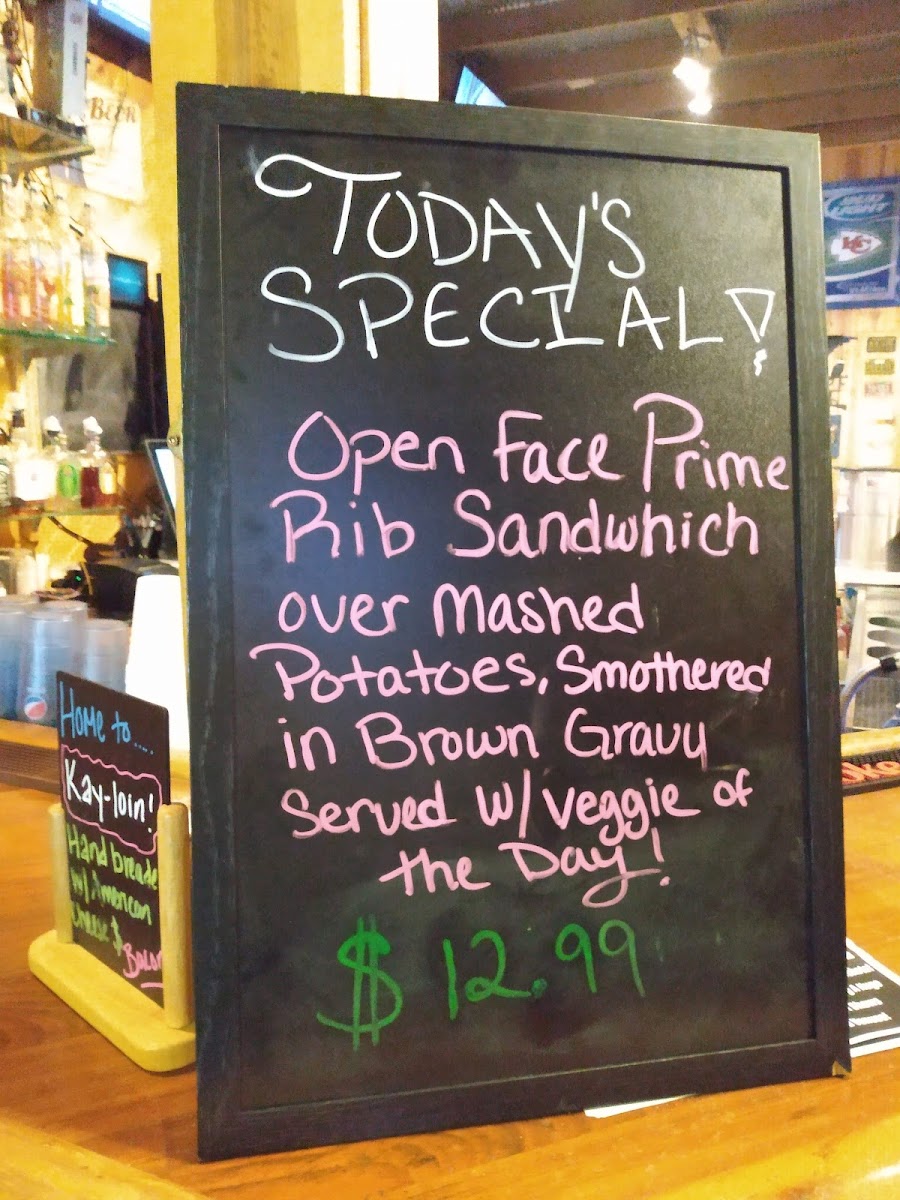 TODAY'S
SPECIAL!
Open Face Prime
Rib Sandwhich
over Mashed
Potatoes, Smothered
in Brown Gravy
Served w/ veggie of
the Day!
$12.99
Home to.....
Kay-loin!
Hand breade
w/ American
Cheese &
Bacon
BEER
KC
pepsi